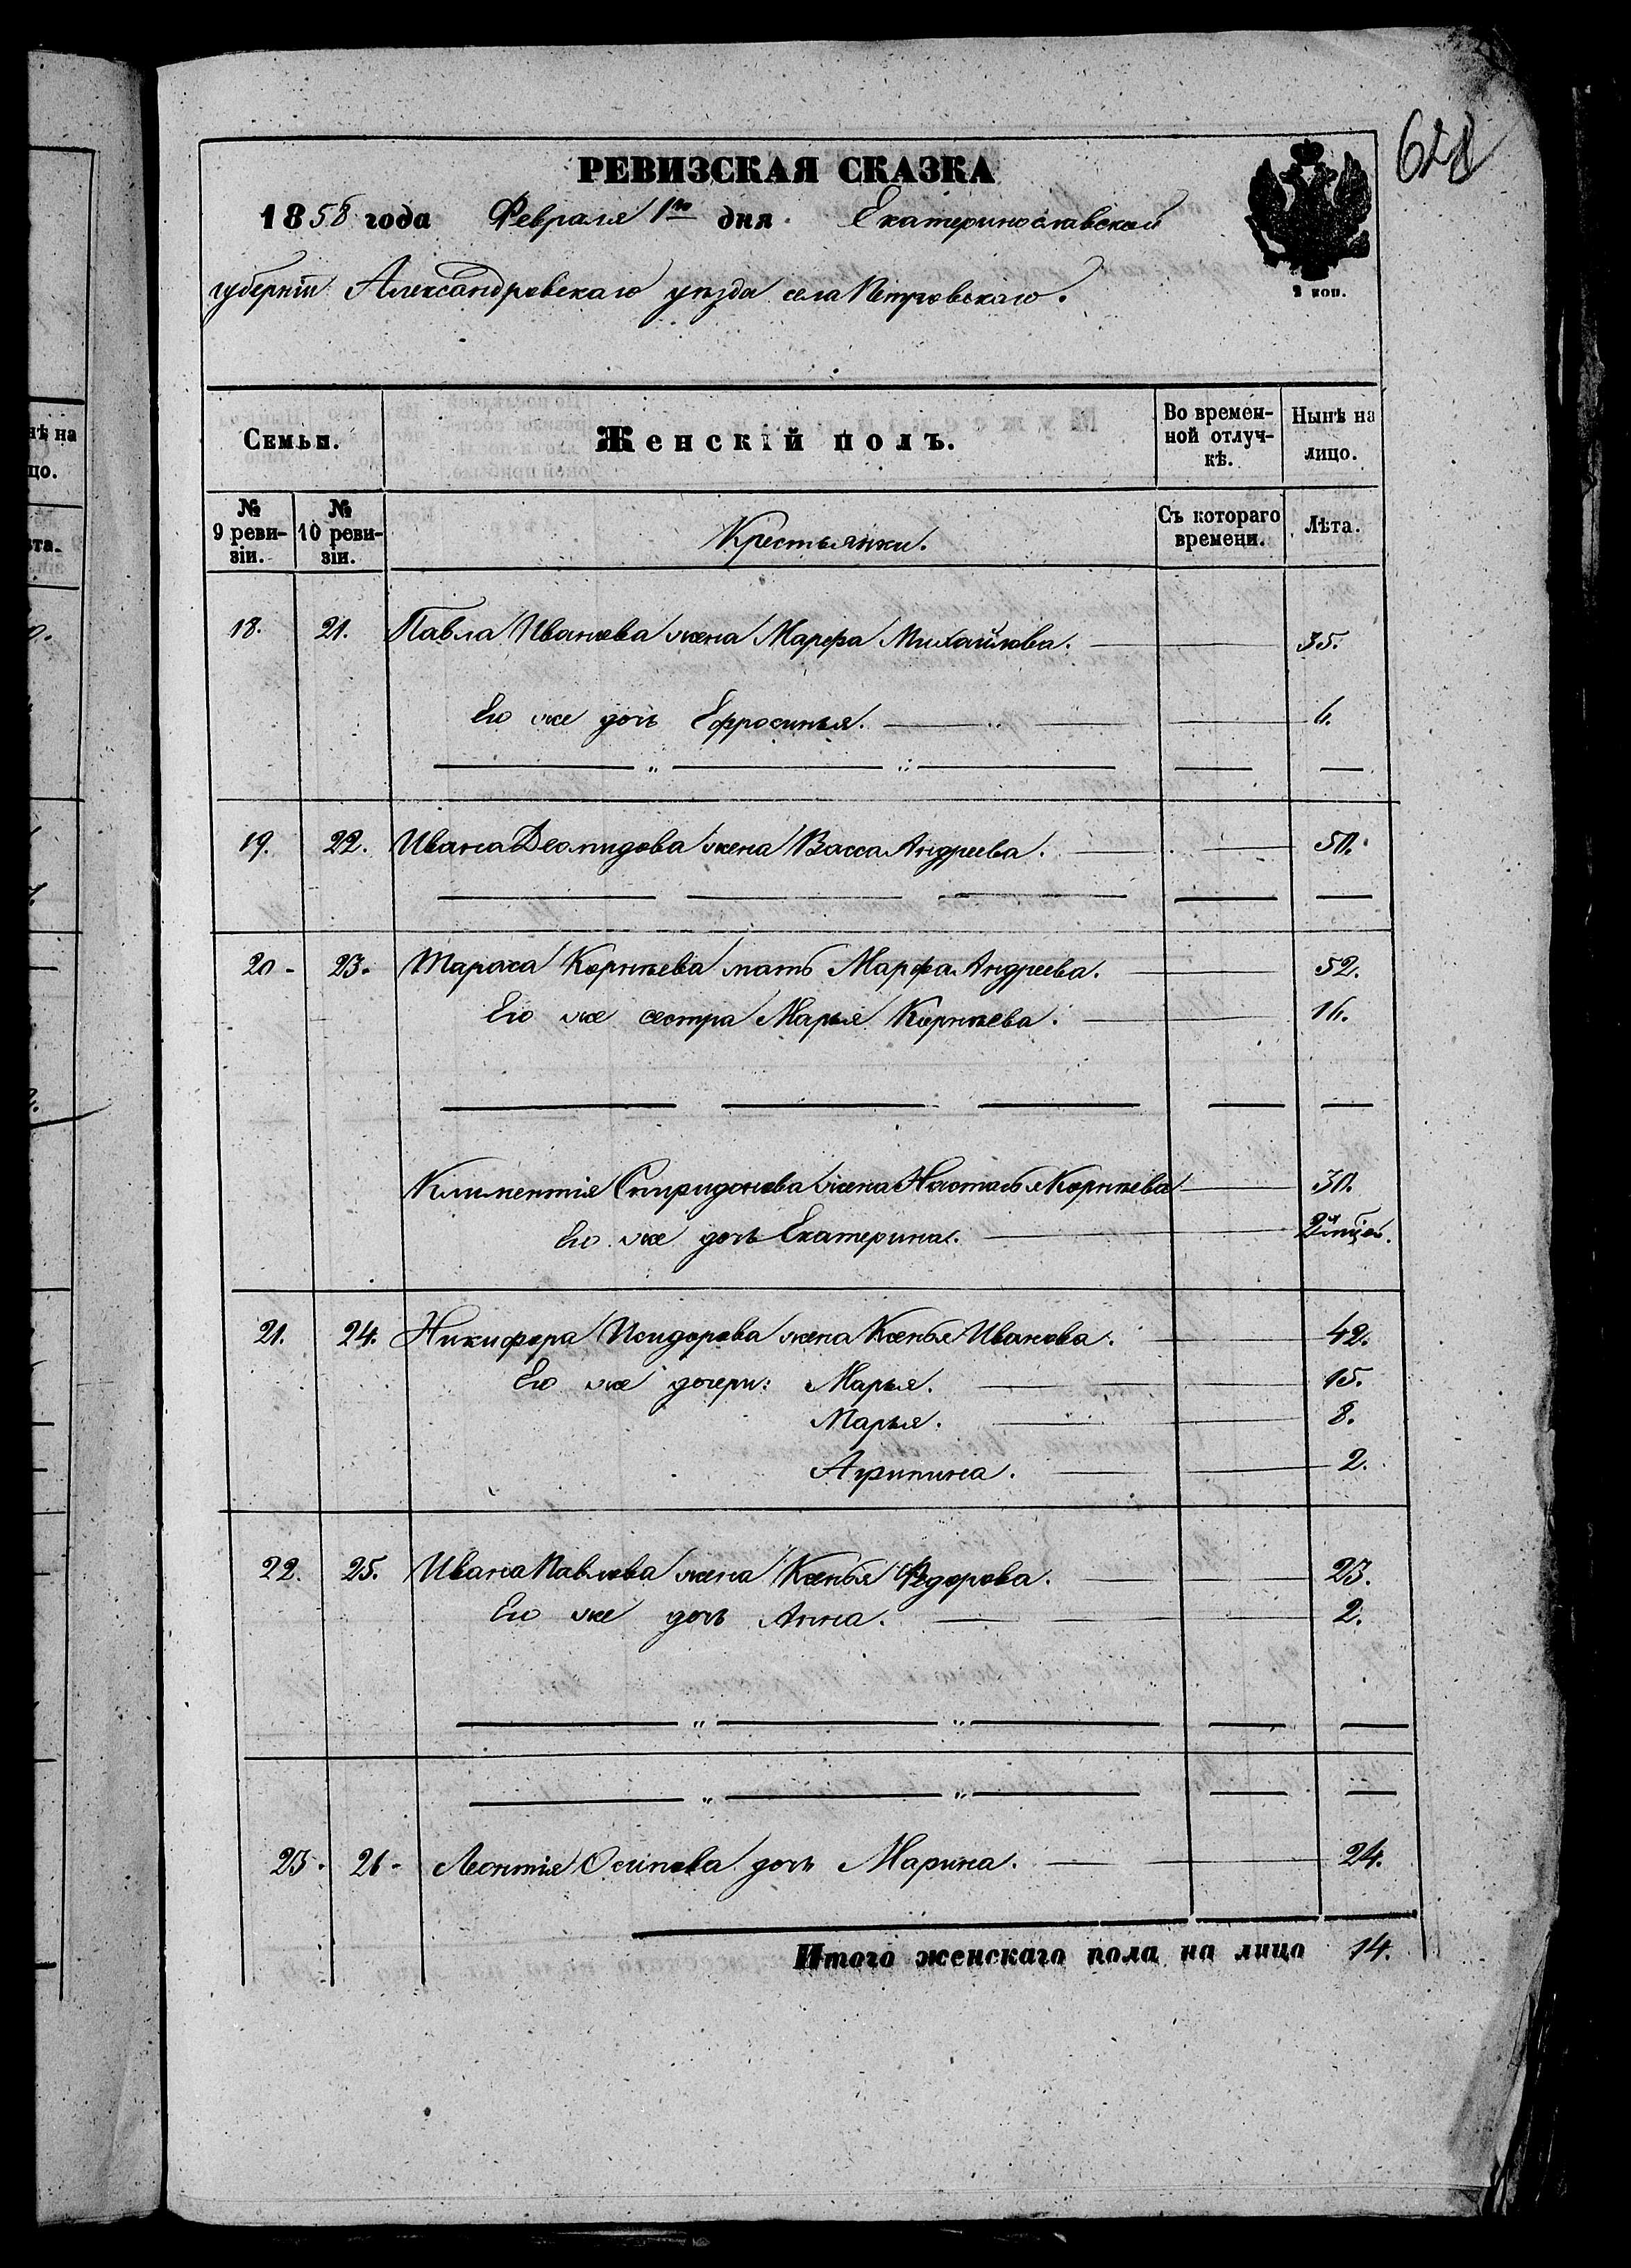 РЕВИЗСКАЯ СКАЗКА
1858 года Февраля 1го дня. Екатеринославской
губерніи Александровскаго уѣзда села Петровскаго.
2 коп.
Семьи. Женскій полъ. Во времен-ной отлуч-кѣ. Нынѣ на лицо.
№ 9 реви-зіи. № 10 реви-зіи. Крестьянки. Съ котораго времени. Лѣта.
18. 21. Павла Иванова жена Марфа Михайлова. 35.
Его же дочь Ефросинья. 6.
19. 22. Ивана Леонидова жена Васса Андреева. 50.
20. 23. Тараса Корнѣева мать Марфа Андреева. 52.
Его же сестра Марья Корнѣева. 16.
Климентія Спиридонова жена Настасья Корнѣева 30.
Его же дочь Екатерина. 2
21. 24. Никифора Исидорова жена Ксенья Иванова. 42.
Его же дочери: Марья. 15.
Марья. 8.
Агрипина. 2.
22. 25. Ивана Павлова жена Ксенья Федорова. 23.
Его же дочь Анна. 2.
23. 26. Леонтія Осипова дочь Марина. 24.
Итого женскаго пола на лицо 14.